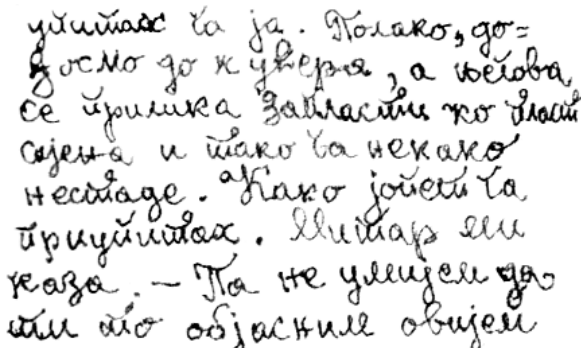 упитах ћа ја. Полако, до=
ђосмо до кувера, а његова
се прилика запласти ко пласт
сијена и тако ћа некако
нестаде. Како јопет ћа
приупитах. Митар ми
каза. — Па не умијем да
ти то објасним овијем